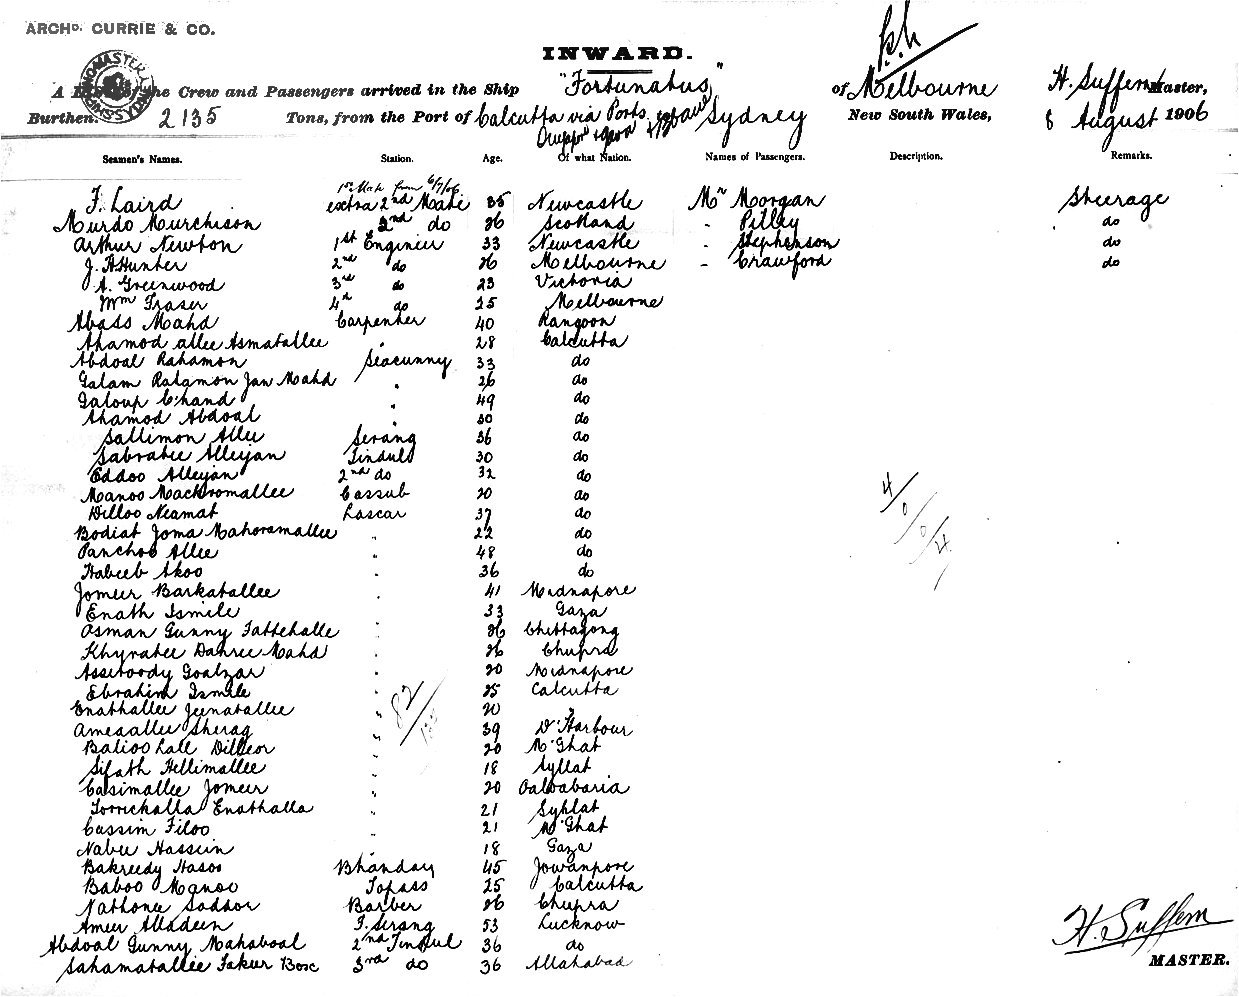 ARCHD. CURRIE & CO.
INWARD.
A List of the Crew and Passengers arrived in the Ship "Fortunatus" of Melbourne H. Suffern Master,
Burthen. 2135 Tons, from the Port of Calcutta via Ports Sydney New South Wales, 8 August 1906
Seamen's Names. Station. Age. Of what Nation. Names of Passengers. Description. Remarks.
1st Mate from 6/7/06
F. Laird extra 2nd Mate 35 Newcastle Mr Morgan Steerage
Murdo Murchison 2nd do 26 Scotland " Pilley do
Arthur Newton 1st Engineer 33 Newcastle " Stephenson do
J. A Hunter 2nd do 26 Melbourne " Crawford do
A. Greenwood 3rd do 23 Victoria
Wm Fraser 4th do 25 Melbourne
Abass Mahd Carpenter 40 Rangoon
Ahamod allee Asmatallee " 28 Calcutta
Abdoal Rahamon Seacunny 33 do
Galam Ralamon Jan Mahd " 26 do
Galoup Chand " 49 do
Ahamod Abdoal " 30 do
Sallimon Allee Serang 36 do
Sabratee Alleyjan Tindull 30 do
Eddoo Alleyjan 2nd do 32 do
Manoo Mackromallee Cassub 20 do
Dilloo Neamat Lascar 37 do
Bodiat Joma Mahoramallee " 22 do
Panchoo Allee " 48 do
Habeeb Akoo " 36 do
Jomeer Barkatallee " 41 Midnapore
Enath Ismile " 33 Gaza
Osman Gunny Fattehalle " 26 Chittagong
Khyratee Dahree Mahd " 26 Chupra
Asseroody Goalzar " 20 Midnapore
Ebrahim Ismile " 25 Calcutta
Enathallee Jeenatallee " 20 "
Ameaallee Sherag " 39 D. Harbour
Balioo Lall Dilleor " 20 N. Ghat
Sifath Hellimallee " 18 Syllat
Casimallee Jomeer " 20 Ooloobaria
Torrickalla Enathalla " 21 Syhlat
Cassim Filoo " 21 N. Ghat
Nabee Hassein " 18 Gaza
Bakreedy Hasoo Bhandary 45 Jowanpore
Baboo Manoo Topass 25 Calcutta
Nathonee Saddor Barber 26 Chupra
Ameer Alladeen F. Serang 53 Lucknow
Abdoal Gunny Mahaboal 2nd Tindul 36 do
Sahamatallee Fakeer Bosc 3rd do 36 Allahabad
4/0/0/4
82
H. Suffern
MASTER.